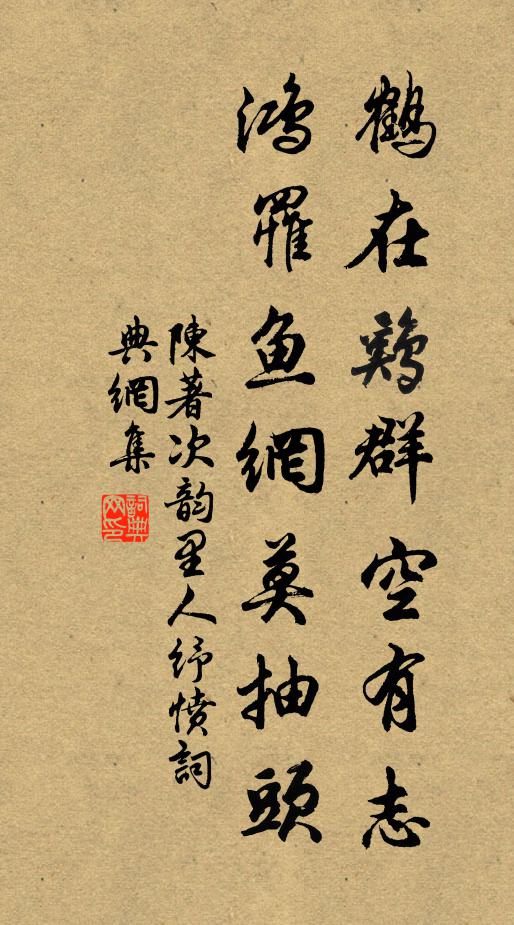 鶴在鶏群空有志
鴻罹魚網莫抽頭
陳著次韵里人紓憤詞
典網集
詞典網印